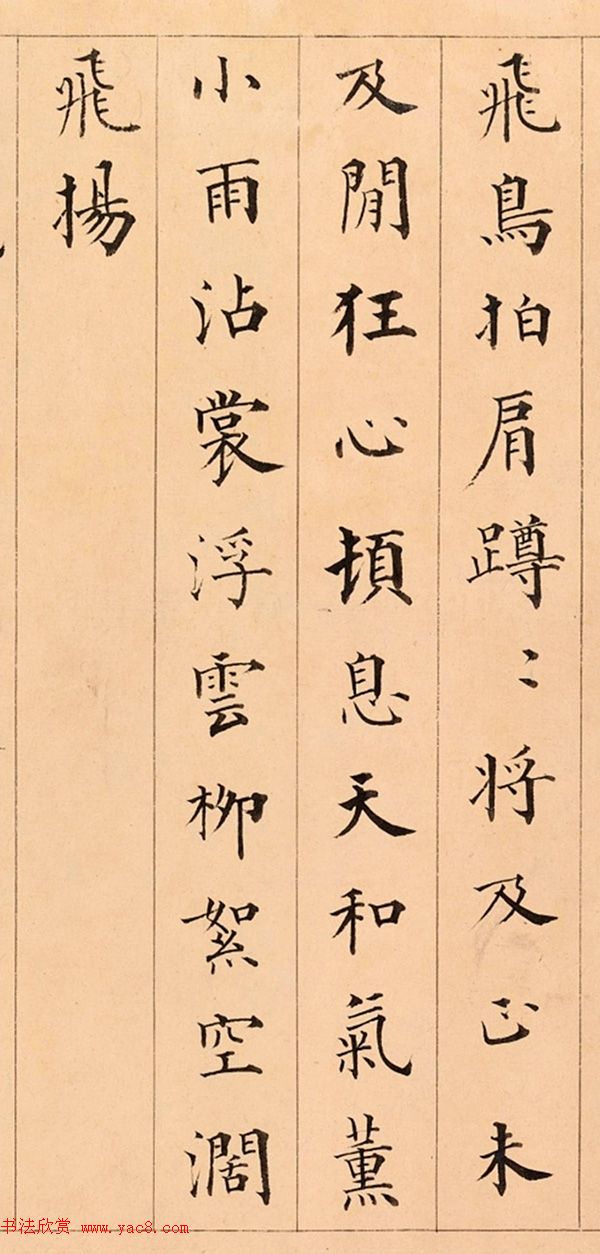 飛鳥拍肩蹲〻將及正未
及閒狂心頓息天和氣薰
小雨沾裳浮雲柳絮空濶
飛揚
书法欣赏 www.yac8.com